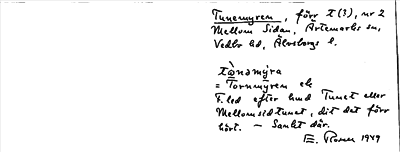 Tunemyren, förr t (3), nr 2
Mellom Sidan, Artemarks sn,
Vedbo hd, Älvsborgs l.
tònəmýra
= Tornmyren ek
F. led efter hmd Tunet eller
Mellomsidtunet, dit det förr
hört. – Sankt där.
E. Rosén 1949